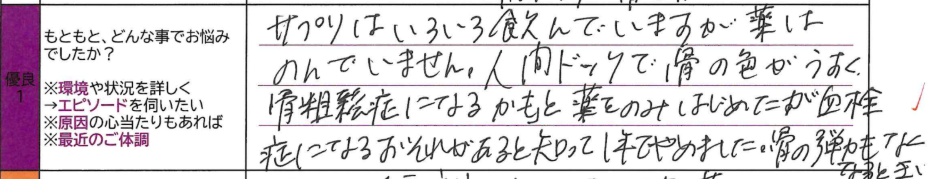 優良
1
もともと、どんな事でお悩み
でしたか？
※環境や状況を詳しく
→エピソードを伺いたい
※原因の心当たりもあれば
※最近のご体調
サプリはいろいろ飲んでいますが薬は
のんでいません。人間ドックで骨の色がうすく
骨粗鬆症になるかもと薬をのみはじめたが血栓
症になるおそれがあると知って1年でやめました。骨の弾力もなく
なると